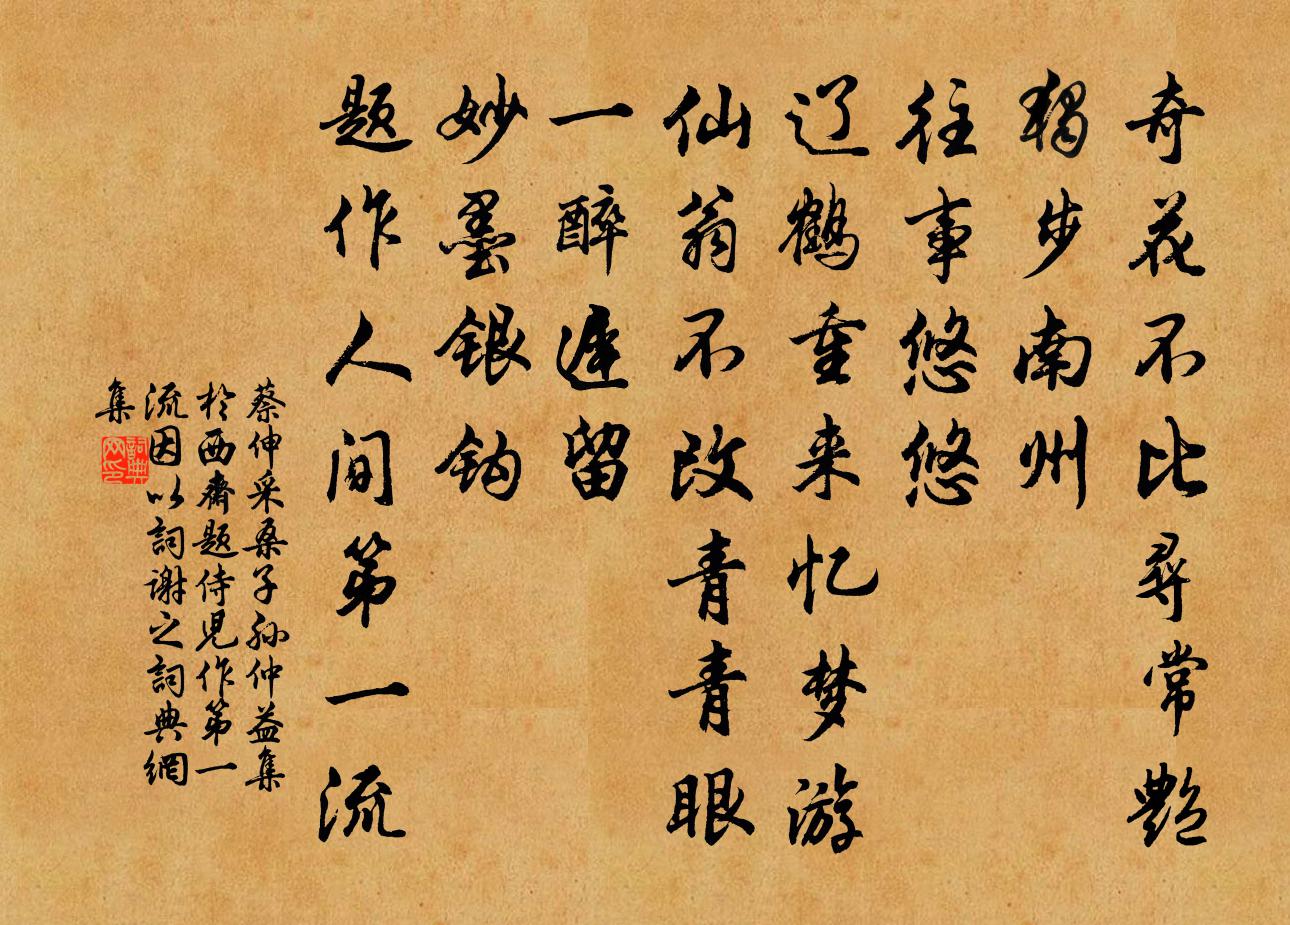 奇花不比尋常艷
独步南州
往事悠悠
辽鹤重来忆梦游
仙翁不改青青眼
一醉遲留
妙墨银钩
题作人间第一流
蔡伸采桑子孙仲益集
於西齋题侍児作第一
流因以詞谢之詞典網
集
詞典網印